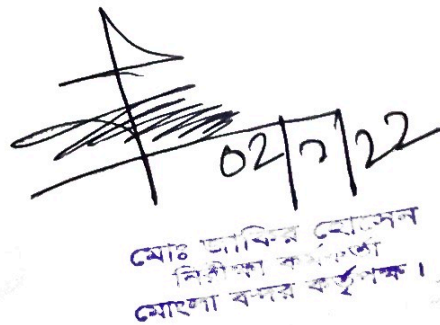 02/7/22
মোঃ জাকির হোসেন
নিরীক্ষা কর্মকর্তা
মোংলা বন্দর কর্তৃপক্ষ।